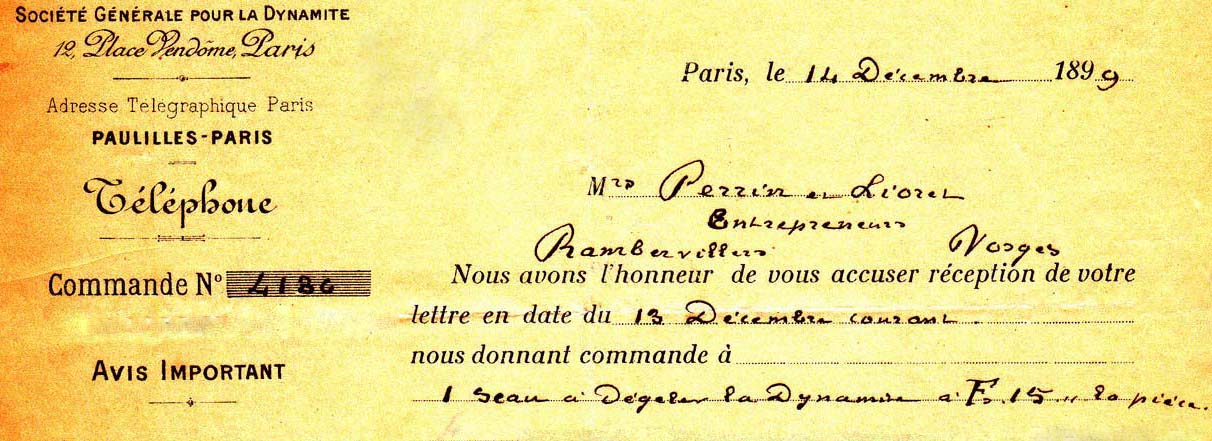 SOCIÉTÉ GÉNÉRALE POUR LA DYNAMITE
12, Place Vendôme, Paris
Adresse Télégraphique Paris
PAULILLES-PARIS
Téléphone
Commande N° 4180
AVIS IMPORTANT
Paris, le 14 Décembre 1899
Mrs Perrin et Lioret
Entrepreneurs
Rambervillers Vosges
Nous avons l'honneur de vous accuser réception de votre
lettre en date du 13 Décembre courant.
nous donnant commande à
1 seau à Dégeler la Dynamite à F. 15 " la pièce.